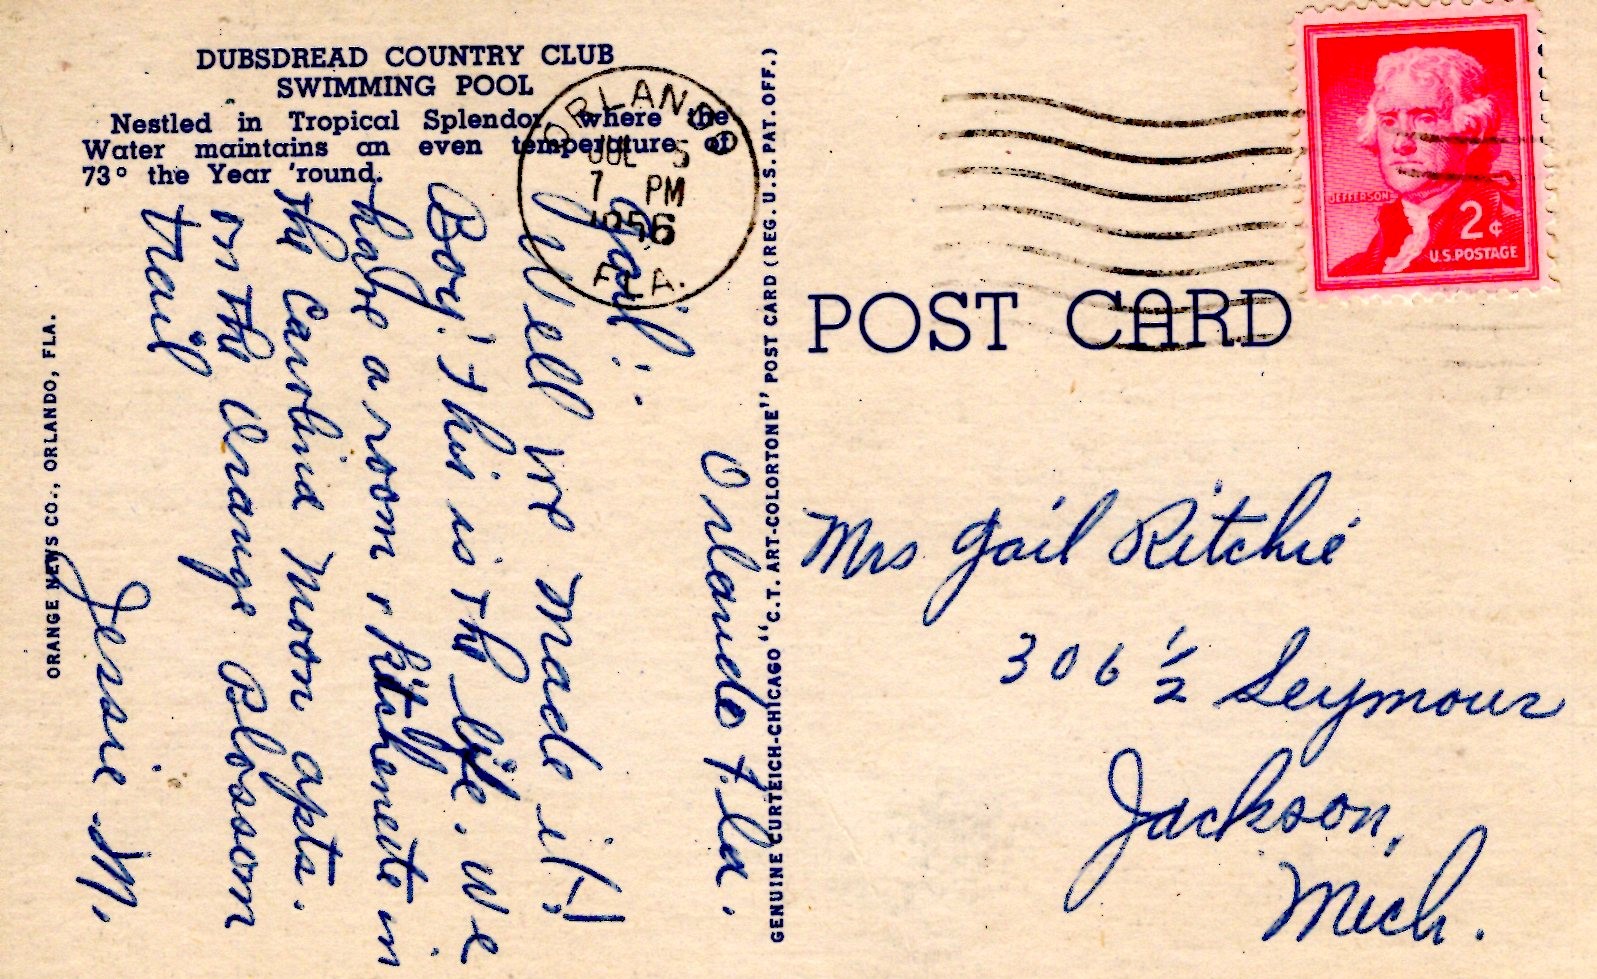 DUBSDREAD COUNTRY CLUB
SWIMMING POOL
Nestled in Tropical Splendor, where the
Water maintains an even temperature of
73° the Year 'round.
ORLANDO
JUL 5
7 PM
1956
FLA.
JEFFERSON
2¢
U.S. POSTAGE
POST CARD
Orlando Fla.
Gail:
Well we made it!!
Boy! This is the life. We
have a room & kitchenette in
the Carolina Moon apts.
on the Orange Blossom
trail
Jessie M.
Mrs Gail Ritchie
306 ½ Seymour
Jackson,
Mich.
ORANGE NEWS CO., ORLANDO, FLA.
GENUINE CURTEICH-CHICAGO "C.T. ART-COLORTONE" POST CARD (REG. U.S. PAT. OFF.)